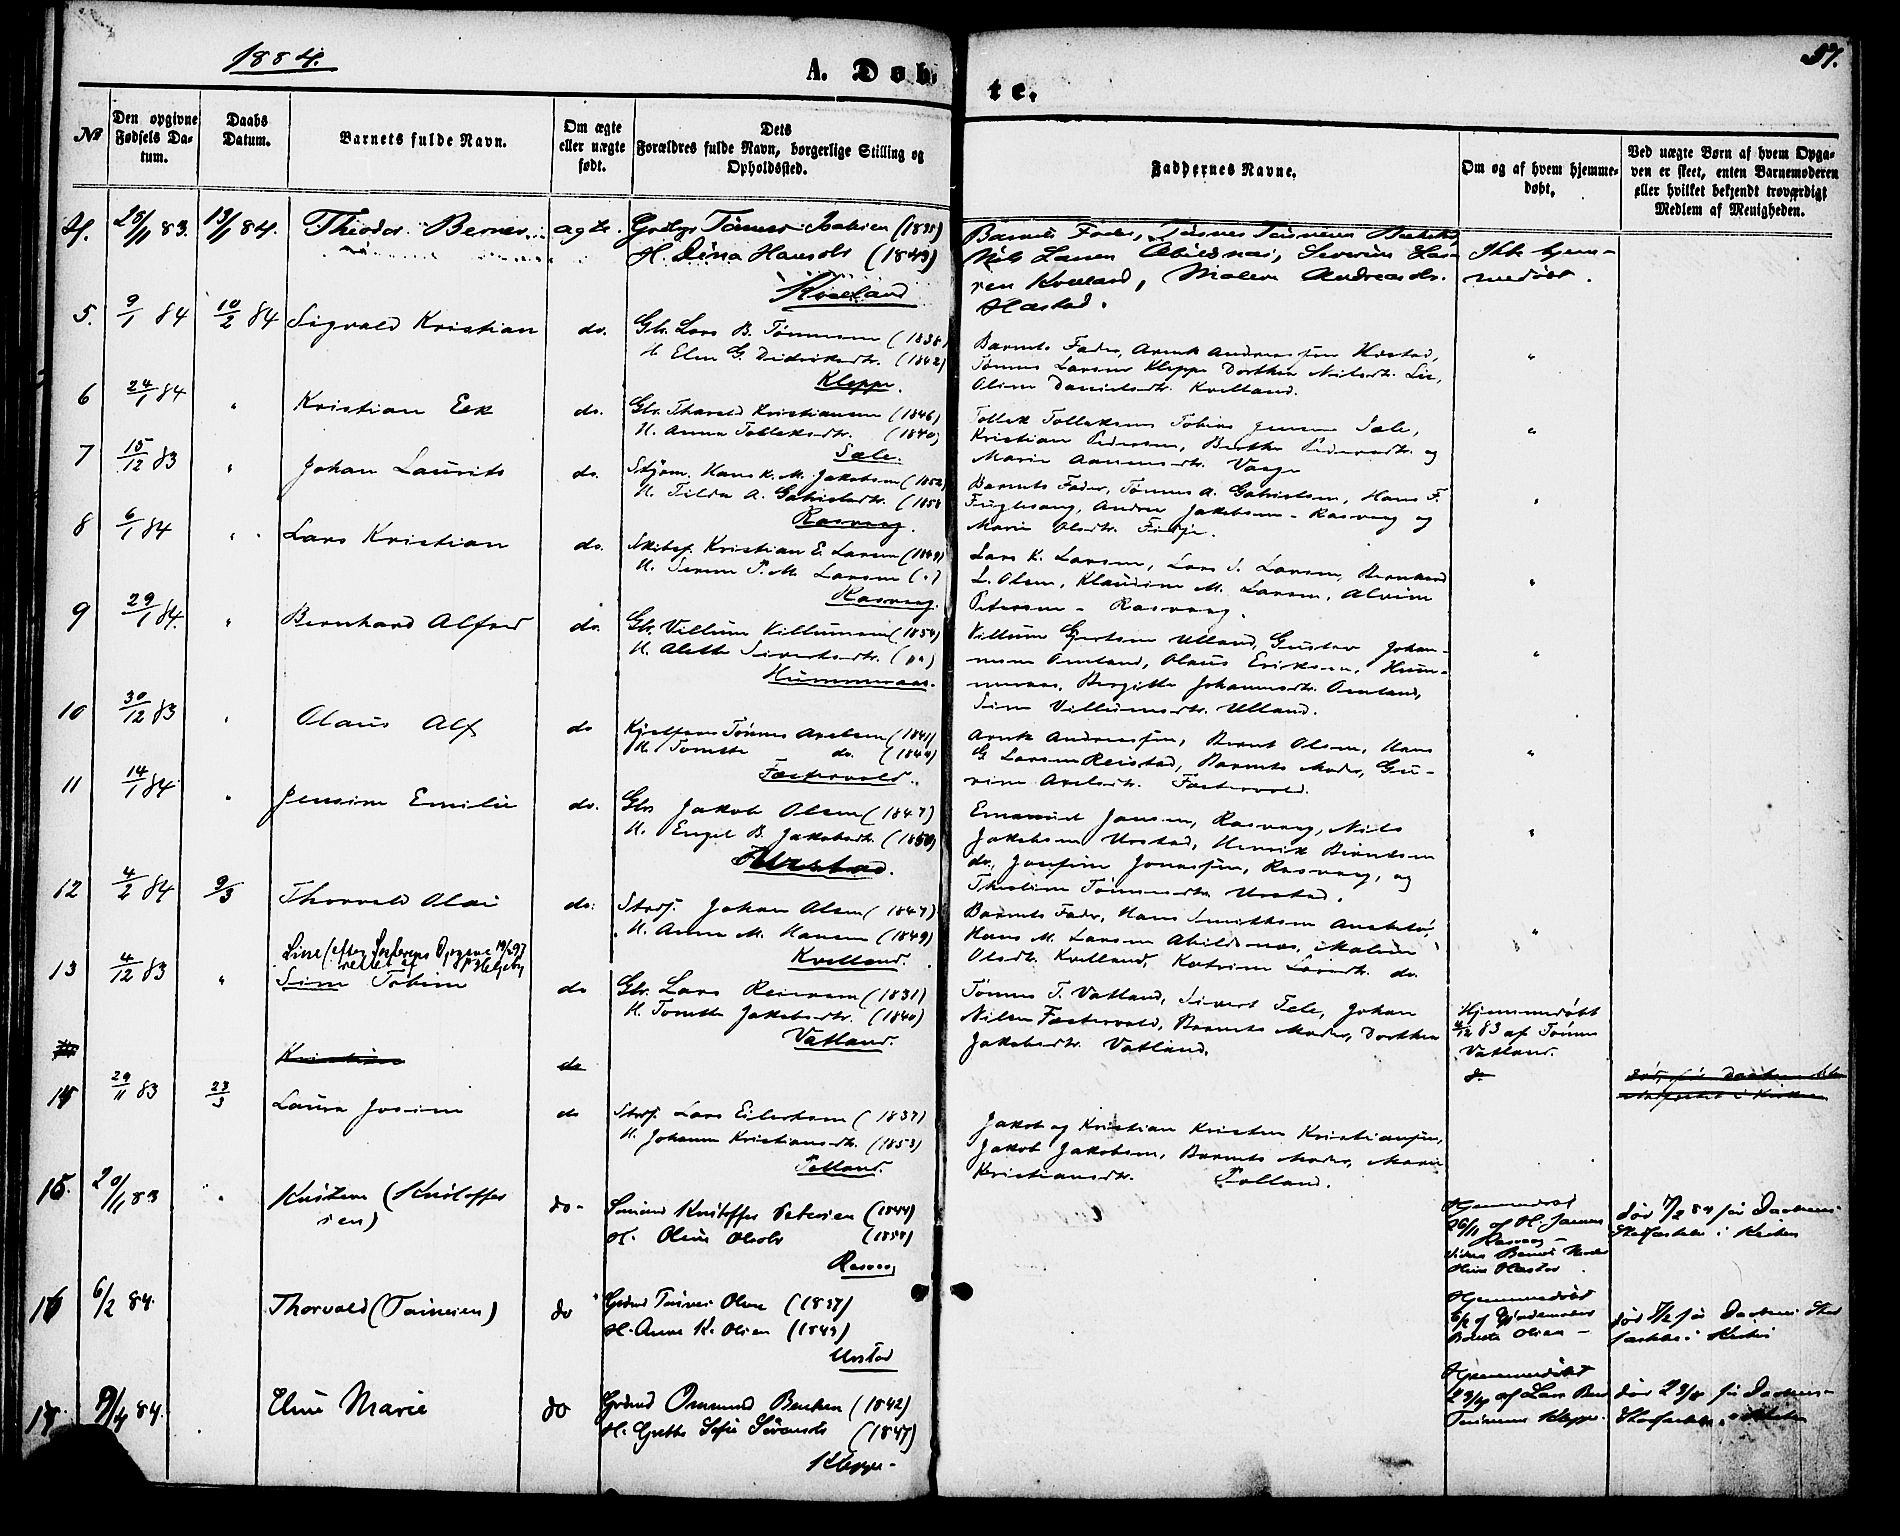 1884.
57.
A. Døb-
te.
№
Den opgivne Fødsels Datum.
Daabs Datum.
Barnets fulde Navn.
Om ægte eller uægte født.
Dets Forældres fulde Navn, borgerlige Stilling og Opholdssted.
Faddernes Navne.
Om og af hvem hjemmedøbt.
Ved uægte Børn af hvem Opgaven er skeet, enten Barnemoderen eller hvilket bekjendt troværdigt Medlem af Menigheden.
4. 83. 13/1 84. Theodor Berner ægte.
H. Dina Hansdtr (1843)
Kvelland
Barnets Fader,
Nils Larsen Abildnæs, Severin Lar-
sen Kvelland, Malene Andreasdtr.
Hæstad.
Ikke hjem-
medøbt.
5. 9/1 84 10/2 84 Sigvald Kristian do.
Gbr. Lars B. Tønnesen (1838)
H. Elen G. Didriksdtr. (1842)
Kleppe.
Barnets Fader, Arnt Andreassen Hæstad,
Tønnes Larsen Kleppe Dorthea Nilsdtr. Lie,
Oline Danielsdtr. Kvelland.
6 24/1 84 " Kristian Eek do.
Gbr. Tharald Kristiansen (1846)
H. Anna Tolleksdtr. (1840)
Sæle.
Tollek Tolleksen Tobias Jensen Sæle,
Kristian Pedersen, Berthe Pedersdtr. og
Marie Aanensdtr. Vaage
7 15/12 83 " Johan Laurits do.
Hans K. M. Jakobsen (1852)
H. Tilda A. Gabrielsdtr. (1858
Rasvaag.
Barnets Fader, Tønnes A. Gabrielsen, Hans F.
Fuglesang, Andrea Jakobsen - Rasvaag og
Marie Olsdtr.
8 6/1 84 " Lars Kristian do.
Skibsf. Kristian E. Larsen (1849)
H. Serene P. M. Larsen (")
Rasvaag.
Lars K. Larsen, Lars S. Larsen, Bernhard
L. Olsen, Klaudine M. Larsen, Alvine
Petersen - Rasvaag.
9 29/1 84. " Bernhard Alfred do.
Gbr. Villum Villumsen (1854)
H. Alette Sivertsdtr. (do)
Hummeraas.
Villum Gjertsen Ulland, Gustav Johan-
nesen Omland, Olaus Eriksen, Hum-
meraas, Bergitte Johannesdtr. Omland,
Sine Villumsdtr. Ulland.
10 30/12 83 " Olaus Alf do
Tønnes Axelsen (1841)
H. Tomette do. (1844)
Fæstervold.
Arnt Andreassen, Bernt Olsen, Hans
G Larsen Reistad, Barnets Moder, Gu-
rine Axelsdtr. Fæstervold.
11 14/1 84 " Jensine Emilie do.
Gbr Jakob Olsen (1847)
H. Engel B. Jakobsdtr. (1850)
Urstad.
Emanuel Jansen, Rasvaag, Nils
Jakobsen Urstad, Henrik Berntsen
do., Josefine Jonassen, Rasvaag, og
Thorline Tønnesdtr. Urstad.
12 4/2 84 9/3 Thorvald Olai do.
Strdf. Johan Olsen (1847)
H. Anna M. Hansen (1849)
Kvelland.
Barnets Fader, Hans Smithsen
Hans M. Larsen Abildsnæs, Malene
Olsdtr. Kvelland, Katrine Larsdtr. do.
13 4/12 83 " Line (efter 19/6 97
Sine Tobine do
Gbr. Lars Reiersen (1831)
H. Tomette Jakobsdtr. (1840)
Vatland.
Tønnes T. Vatland, Sivert Tele, Johan
Nilsen Fæstervold, Barnets Moder, Dorthea
Jakobsdtr. Vatland.
Hjemmedøbt
4/12 83 af Tønnes
Vatland.
Kristian do
14 29/11 83 23/3 Laura Josine do
Strdf. Lars Eilertsen (1837)
H. Johanne Kristiansdtr. (1853)
Polland.
Jakob og Kristian Kristen Kristiansen,
Jakob Jakobsen, Barnets Moder, Marie
Kristiansdtr. Polland.
15. 20/11 83 " Kristene (Kristoffer
sen) do -
Sømand Kristoffer Petersen (1844)
H. Oline Olsdtr (1858)
Rasvaag
Hjemmedøbt
26/11 af H. Jansen
Rasvaag -
død 7/2 84 før Daabens
Stadfæstelse i Kirken
16 6/2 84. Thorvald (Tønnesen) do
Grdmd Tønnes Olsen (1837)
H. Anne K. Olsen (1843)
Urstad
Hjemmedøbt
6/2 af Gjordemoder
Berte Olsen -
død 7/2 før Daabens Stad
fæstelse i Kirken
17 9/4 84. Eline Marie do
Grdmd Ommund Bentsen (1842)
H. Grethe Sofie Sørensdtr (1847)
Kleppe -
Hjemmedøbt
23/4 af Lars Bernt
Tønnesen Kleppe.
død 23/8 før Daabens-
Stadfæstelse i Kirken